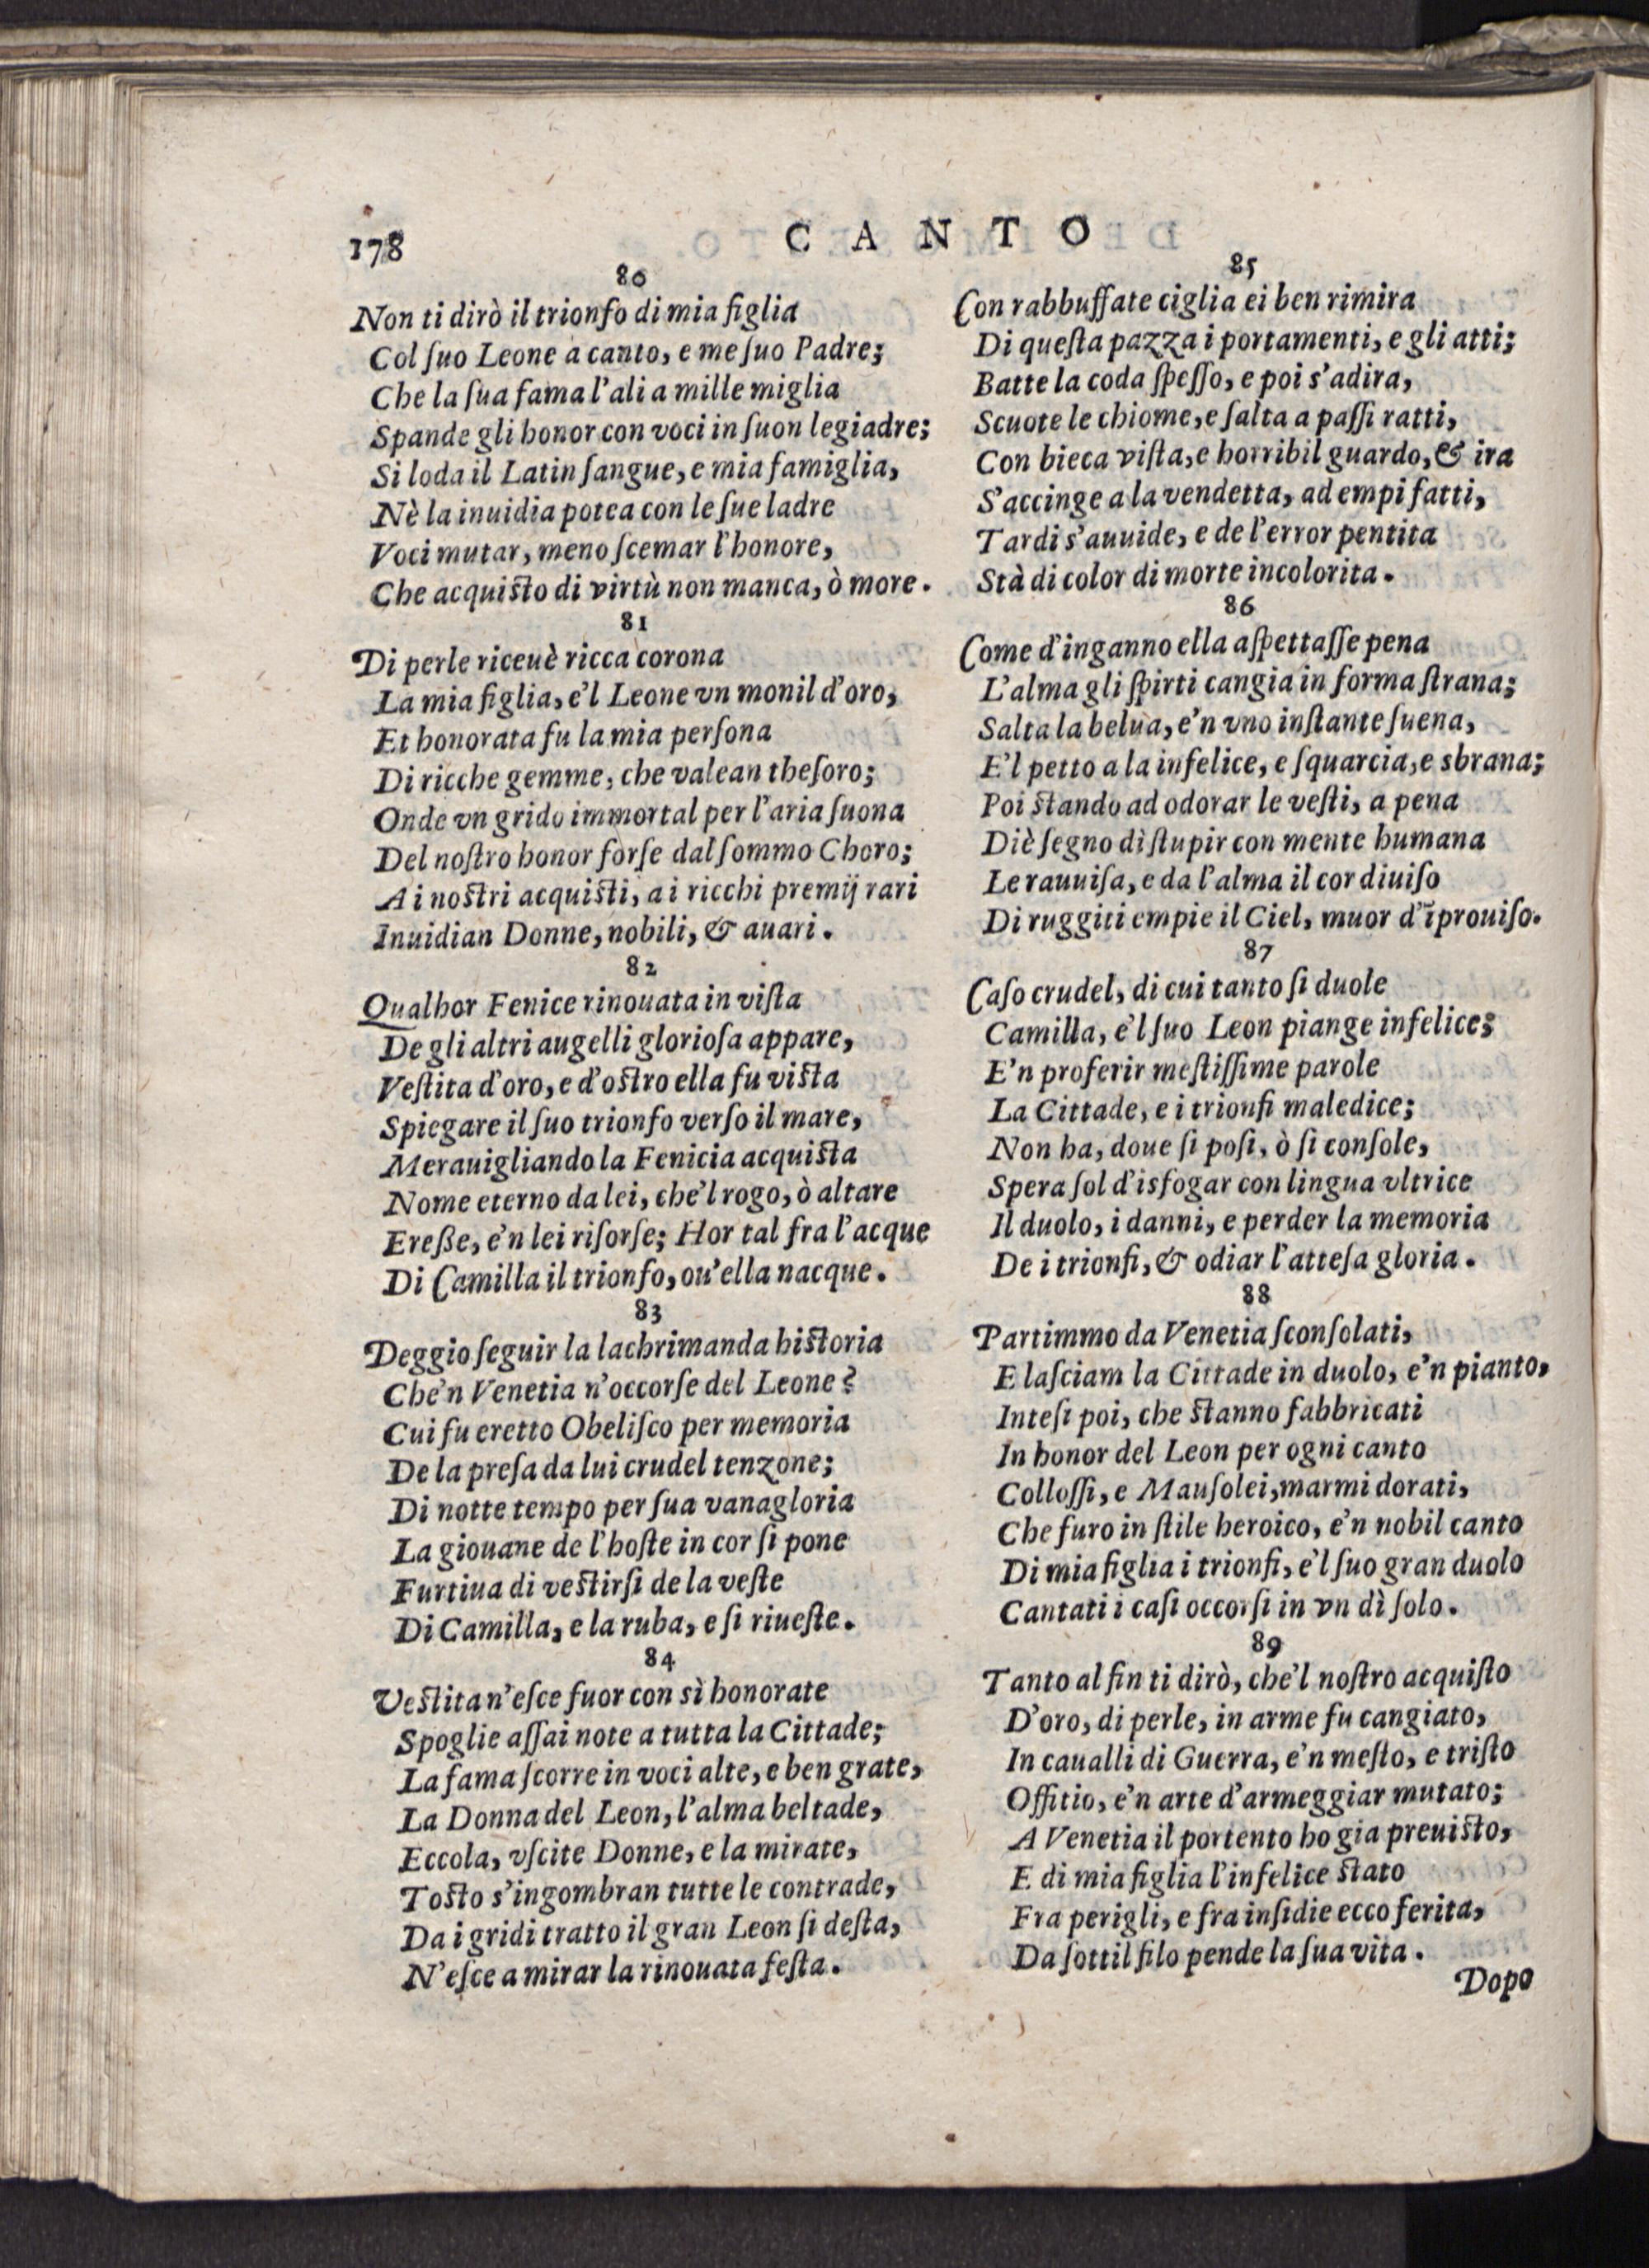 178
CANTO
80
Non ti dirò il trionfo di mia figlia
Col ſuo Leone a canto, e me ſuo Padre;
Che la ſua fama l'ali a mille miglia
Spande gli honor con voci in ſuon legiadre;
Si loda il Latin ſangue, e mia famiglia,
Nè la inuidia potea con le ſue ladre
Voci mutar, meno ſcemar l'honore,
Che acquiſto di virtù non manca, ò more.
81
Di perle riceuè ricca corona
La mia figlia, e'l Leone vn monil d'oro,
Et honorata fu la mia perſona
Di ricche gemme, che valean theſoro;
Onde vn grido immortal per l'aria ſuona
Del noſtro honor forſe dal ſommo Choro;
A i noſtri acquiſti, a i ricchi premij rari
Inuidian Donne, nobili, & auari.
82
Qualhor Fenice rinouata in viſta
De gli altri augelli glorioſa appare,
Veſtita d'oro, e d'oſtro ella fu viſta
Spiegare il ſuo trionfo verſo il mare,
Merauigliando la Fenicia acquiſta
Nome eterno da lei, che'l rogo, ò altare
Ereße, e'n lei riſorſe; Hor tal fra l'acque
Di Camilla il trionfo, ou'ella nacque.
83
Deggio ſeguir la lachrimanda hiſtoria
Che'n Venetia n'occorſe del Leone?
Cui fu eretto Obeliſco per memoria
De la preſa da lui crudel tenzone;
Di notte tempo per ſua vanagloria
La giouane de l'hoſte in cor ſi pone
Furtiua di veſtirſi de la veſte
Di Camilla, e la ruba, e ſi riueſte.
84
Veſtita n'eſce fuor con sì honorate
Spoglie aſſai note a tutta la Cittade;
La fama ſcorre in voci alte, e ben grate,
La Donna del Leon, l'alma beltade,
Eccola, vſcite Donne, e la mirate,
Toſto s'ingombran tutte le contrade,
Da i gridi tratto il gran Leon ſi deſta,
N'eſce a mirar la rinouata feſta.
85
Con rabbuffate ciglia ei ben rimira
Di queſta pazza i portamenti, e gli atti;
Batte la coda ſpeſſo, e poi s'adira,
Scuote le chiome, e ſalta a paſſi ratti,
Con bieca viſta, e horribil guardo, & ira
S'accinge a la vendetta, ad empi fatti,
Tardi s'auuide, e de l'error pentita
Stà di color di morte incolorita.
86
Come d'inganno ella aſpettaſſe pena
L'alma gli ſpirti cangia in forma ſtrana;
Salta la belua, e'n vno inſtante ſuena,
E'l petto a la infelice, e ſquarcia, e sbrana;
Poi ſtando ad odorar le veſti, a pena
Diè ſegno dì ſtupir con mente humana
Le rauuiſa, e da l'alma il cor diuiſo
Di ruggiti empie il Ciel, muor d'ĩprouiſo.
87
Caſo crudel, di cui tanto ſi duole
Camilla, e'l ſuo Leon piange infelice;
E'n proferir meſtiſſime parole
La Cittade, e i trionfi maledice;
Non ha, doue ſi poſi, ò ſi conſole,
Spera ſol d'isfogar con lingua vltrice
Il duolo, i danni, e perder la memoria
De i trionfi, & odiar l'atteſa gloria.
88
Partimmo da Venetia ſconſolati,
E laſciam la Cittade in duolo, e'n pianto,
Inteſi poi, che ſtanno fabbricati
In honor del Leon per ogni canto
Colloſſi, e Mauſolei, marmi dorati,
Che furo in ſtile heroico, e'n nobil canto
Di mia figlia i trionfi, e'l ſuo gran duolo
Cantati i caſi occorſi in vn dì ſolo.
89
Tanto al fin ti dirò, che'l noſtro acquiſto
D'oro, di perle, in arme fu cangiato,
In caualli di Guerra, e'n meſto, e triſto
Offitio, e'n arte d'armeggiar mutato;
A Venetia il portento ho gia preuiſto,
E di mia figlia l'infelice ſtato
Fra perigli, e fra inſidie ecco ferita,
Da ſottil filo pende la ſua vita.
Dopo